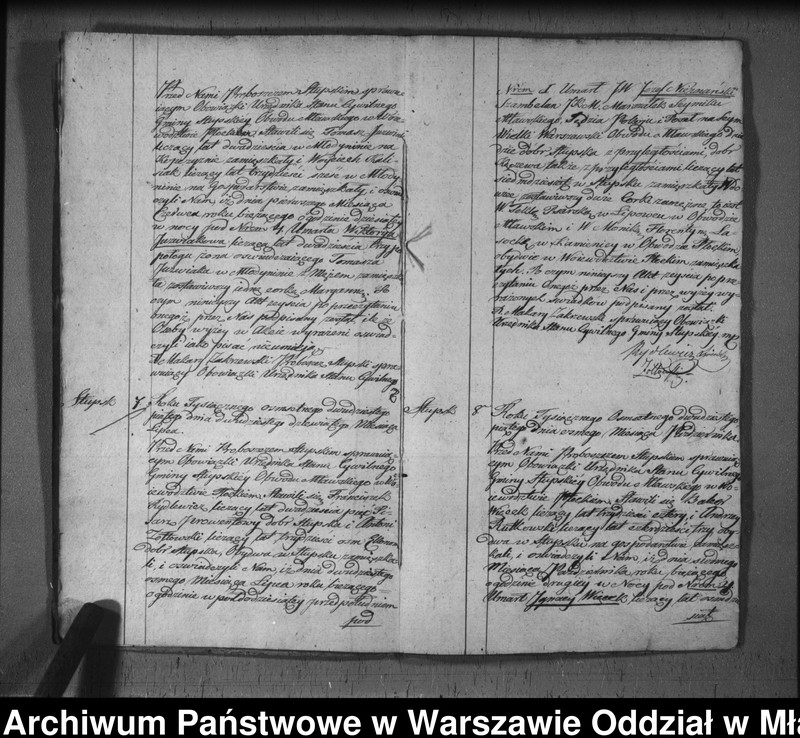 Przed Nami Proboszczem Słupskim sprawu-
iącym Obowiązki Urzędnika Stanu Cywilnego
Gminy Słupskiey Obwodu Mławskiego w Wo
iewodztwie Płockiem Stawili się Tomasz
liczący lat dwadzieścia w Młodyninie na
zamieszkały i Woyciech
siak liczący lat trzydzieści sześć w Młody
ninie na Gospodarstwie zamieszkały i oświad
czyli Nam iż dnia pierwszego Miesiąca
Czerwca roku bieżącego o godzinie dziesiątey
w nocy pod Nrem Umarła Wiktorya
Juzwiakowa licząca lat dwadzieścia trzy po
połogu żona oświadczaiącego Tomasza
Juzwiaka w Młodyninie z Mężem zamieszka
ła zostawiwszy iedną corkę Maryannę. Po
czym ninieyszy Akt zeyscia po przeczytaniu
onegoż przez Nas podpisany został ile że
Osoby wyżey w Akcie wyrażeni oświad-
czyli iako pisać nieumieią
X Makary Zakrzewski Proboszcz Słupski spra
wuiący Obowiązki Urzędnika Stanu Cywilnego
Słupsk 7 Roku Tysiącznego osmsetnego dwudziestego
piątego dnia dwudziestego dziewiątego Miesiąca
Lipca
Przed Nami Proboszczem Słupskim sprawuią-
cym Obowiązki Urzędnika Stanu Cywilnego
Gminy Słupskiey Obwodu Mławskiego w Wo
iewodztwie Płockiem Stawili się Franciszek
Rydlewicz liczący lat dwadzieścia pięć Pi-
sarz Prowentowy dobr Słupska i Antoni
Żołtowski liczący lat trzydzieści osm Ekonom
dobr Słupska, Obydwa w Słupsku zamieszka
li, i oświadczyli Nam, iż dnia dwudziestego
osmego Miesiąca Lipca roku bieżącego
o godzinie w poł do dziesiątey przed południem
pod
Nrem 1 Umarł JW Jozef
Szambelan J.K.M. Marszałek Seymiku
Mławskiego, Sędzia Pokoju i Poseł na Seym
Wielki Warszawski Obwodu Mławskiego dzie
dzic dobr Słupska z przyległościami, dobr
także z przyległościami liczący lat
siedmdziesiąt w Słupsku zamieszkały W
zostawiwszy dwie Corki zamężne to iest
W Teklę w Lipowcu w Obwodzie
Mławskim i W Monikę Florentynę La-
socką w Kamienicy w Obwodzie Płockim
obydwie w Woiewodztwie Płockiem zamieszka
łych. Po czym ninieyszy Akt zeyscia po prze
czytaniu Onegoż przez Nas i przez wyżey wy
rażonych świadkow podpisany został.
X Makary Zakrzewski sprawuiący Obowiązki
Urzędnika Stanu Cywilnego Gminy Słupskiey mp
Rydlewicz
Żołtowski
Słupsk 8 Roku Tysiącznego Osmsetnego dwudziestego
piątego Dnia osmego Miesiąca Października
Przed Nami Proboszczem Słupskim sprawuią
cym Obowiązki Urzędnika Stanu Cywilnego
Gminy Słupskiey Obwodu Mławskiego w Wo-
iewodztwie Płockiem, Stawili się
liczący lat trzydzieści cztery i Andrzey
Rutkowski liczący lat czterdzieści trzy Oby
dwa w Słupsku na gospodarstwie zamiesz-
kali, i oświadczyli Nam, iż dnia siodmego
Miesiąca Października roku bieżącego
o godzinie drugiey w Nocy pod Nrem
Umarł Ignacy liczący lat
Archiwum Państwowe w Warszawie Oddział w Mła